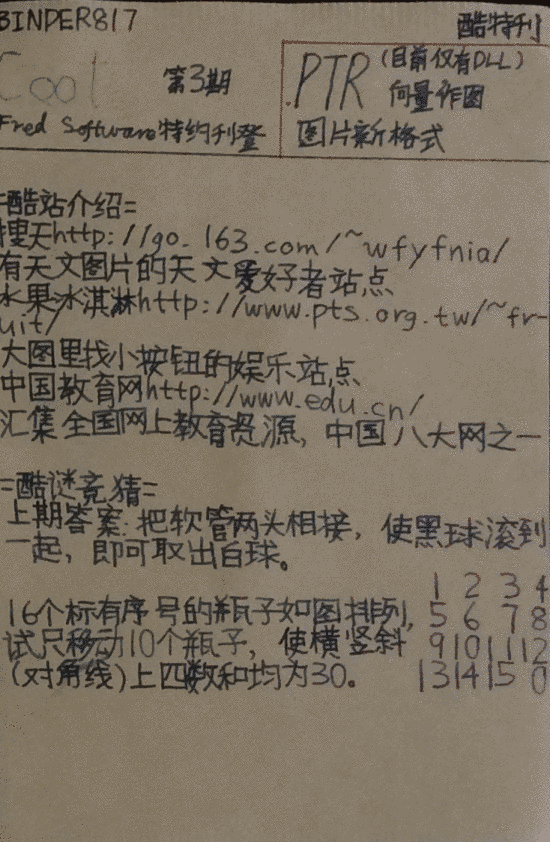 BINDER817
酷特刊
Cool 第3期
Fred Software特约刊登
PTR(目前仅有DLL)
向量作图
图片新格式
=酷站介绍=
搜天http://go.163.com/~wfyfnia/
有天文图片的天文爱好者站点
水果冰淇淋http://www.pts.org.tw/~fr-
uit/
大图里找小按钮的娱乐站点
中国教育网http://www.edu.cn/
汇集全国网上教育资源，中国八大网之一
=酷谜竞猜=
上期答案：把软管两头相接，使黑球滚到
一起，即可取出白球。
16个标有序号的瓶子如图排列，
试只移动10个瓶子，使横竖斜
(对角线)上四数和均为30。
1 2 3 4
5 6 7 8
9 10 11 12
13 14 15 0